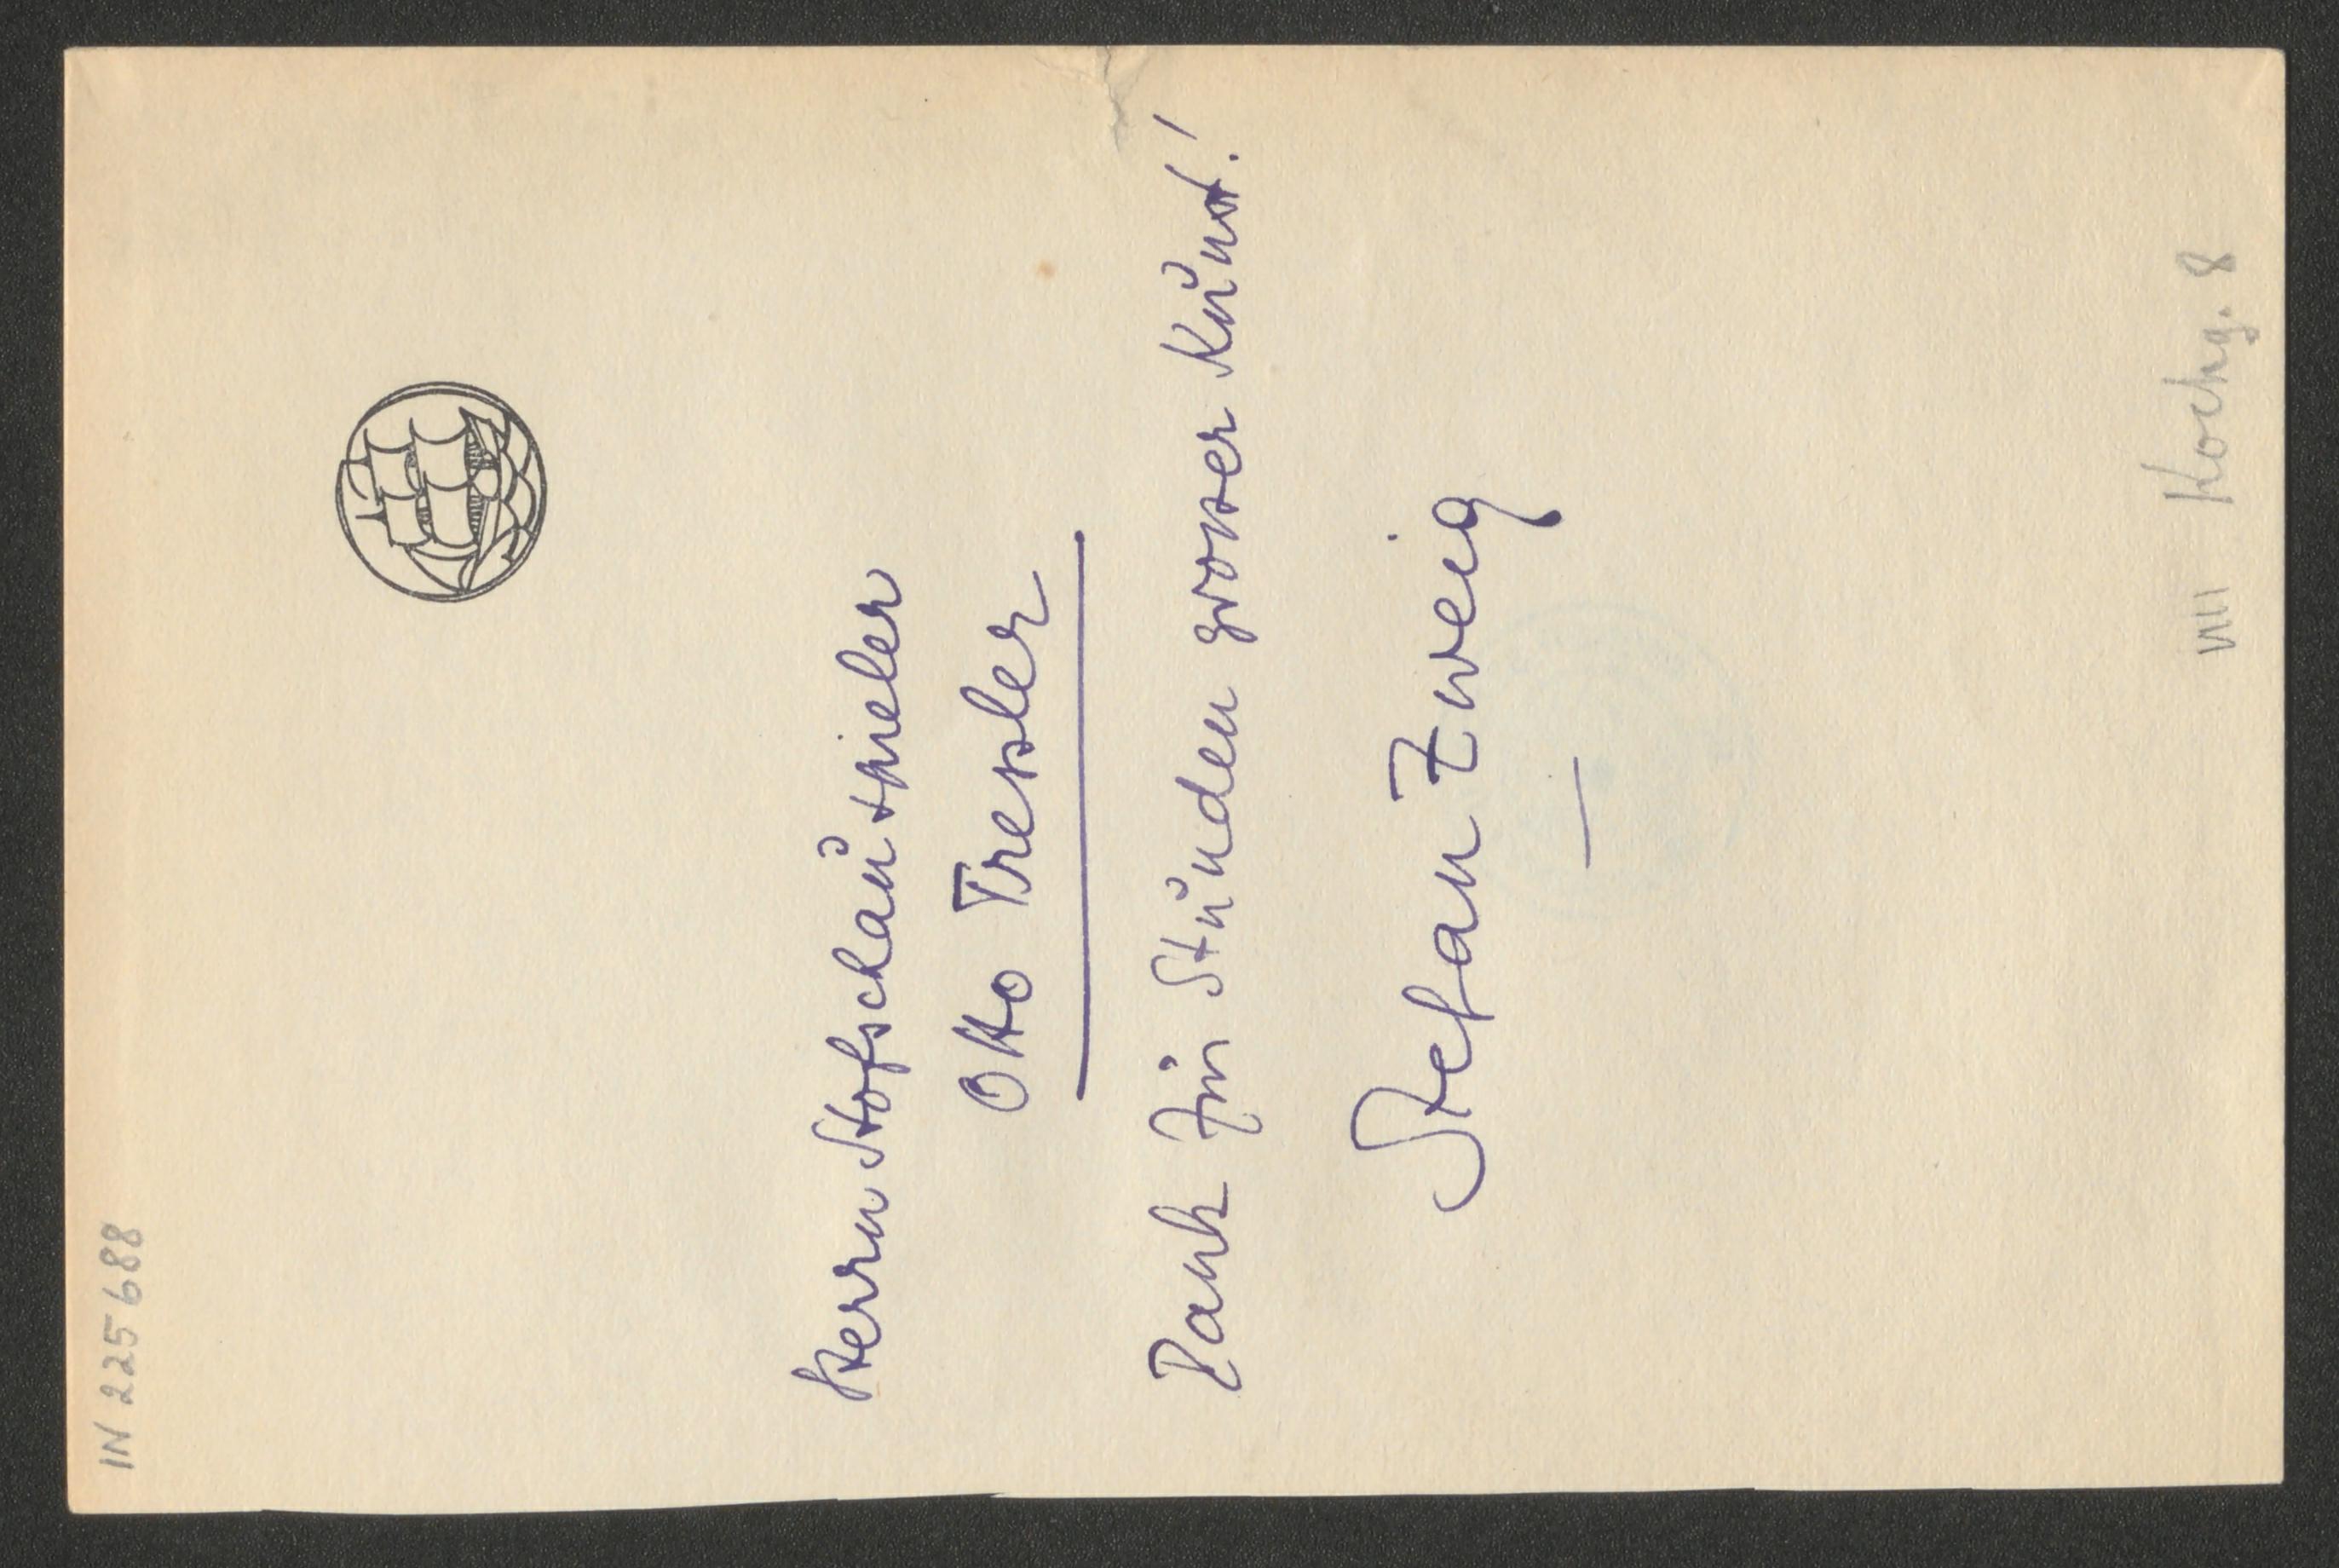 IN 225688
Herrn Hofschauspieler
Otto Tressler
Dank für Stunden grosser Kunst!
Stefan Zweig
VIII Kochg. 8